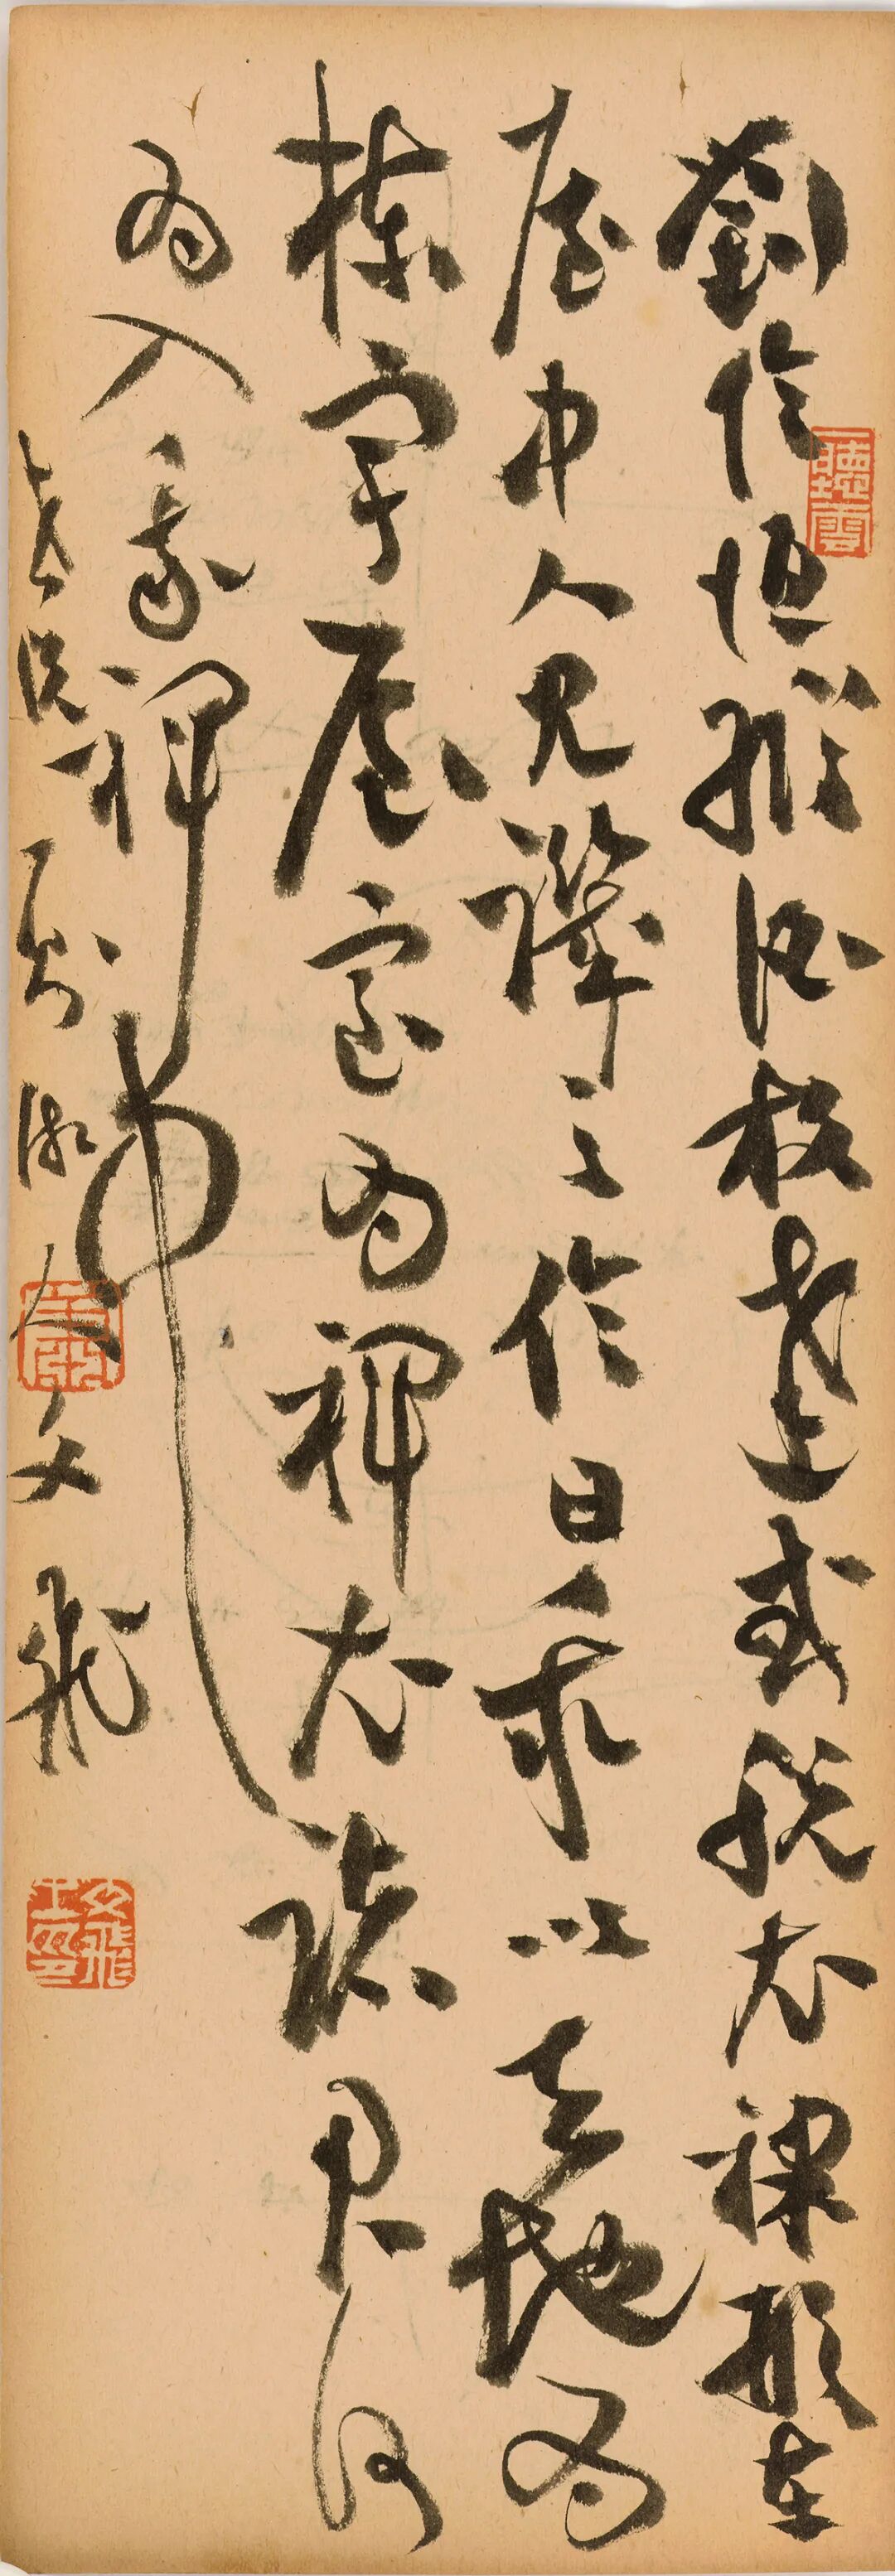 劉伶恆縱酒放達或脫衣裸形在
屋中人見譏之伶曰我以天地為
棟宇屋室為褌衣諸君何
為入我褌中
人文飛
聽雲